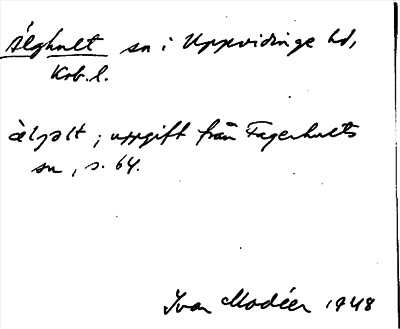 Älghult sn i Uppvidinge hd,
Krb.l.
àlgalt; uppgift från Fagerhults
sn, s. 64.
Ivar Modéer 1948